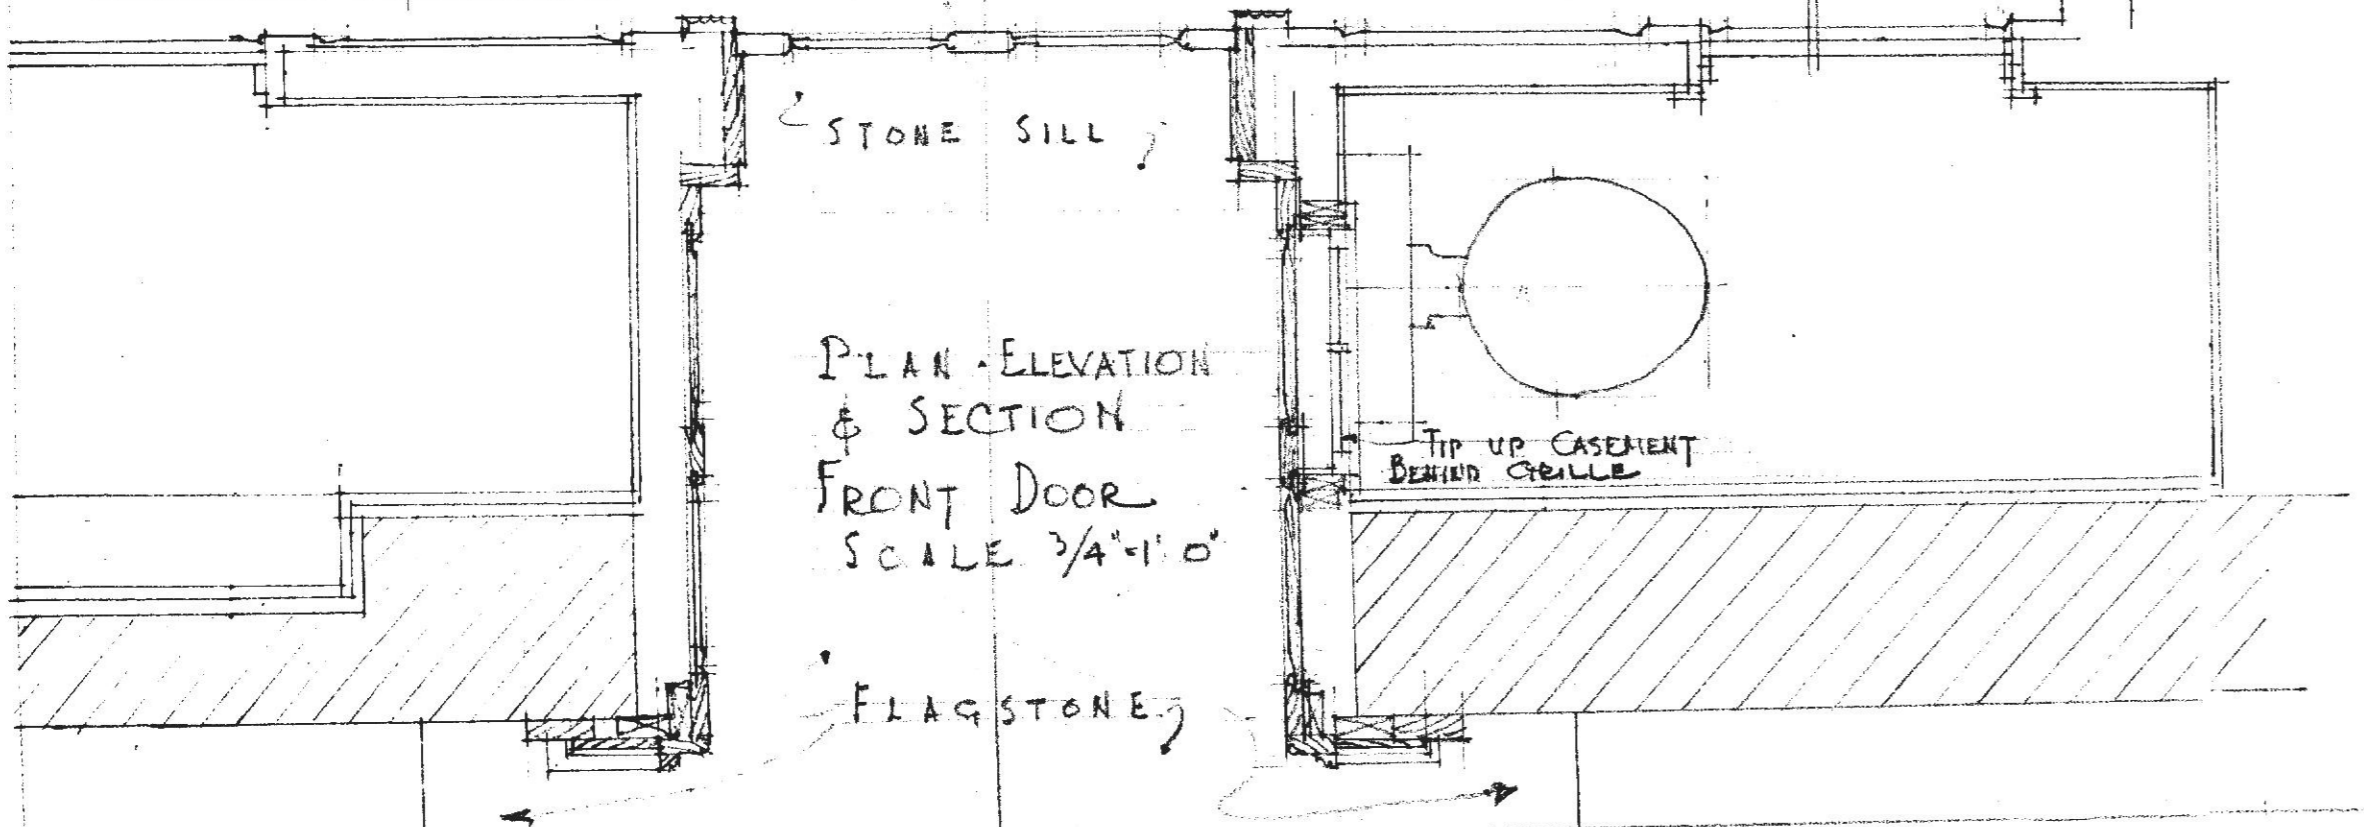 STONE SILL
PLAN · ELEVATION
& SECTION
FRONT DOOR
SCALE 3/4"=1'0"
TIP UP CASEMENT
BEHIND GRILLE
FLAGSTONE